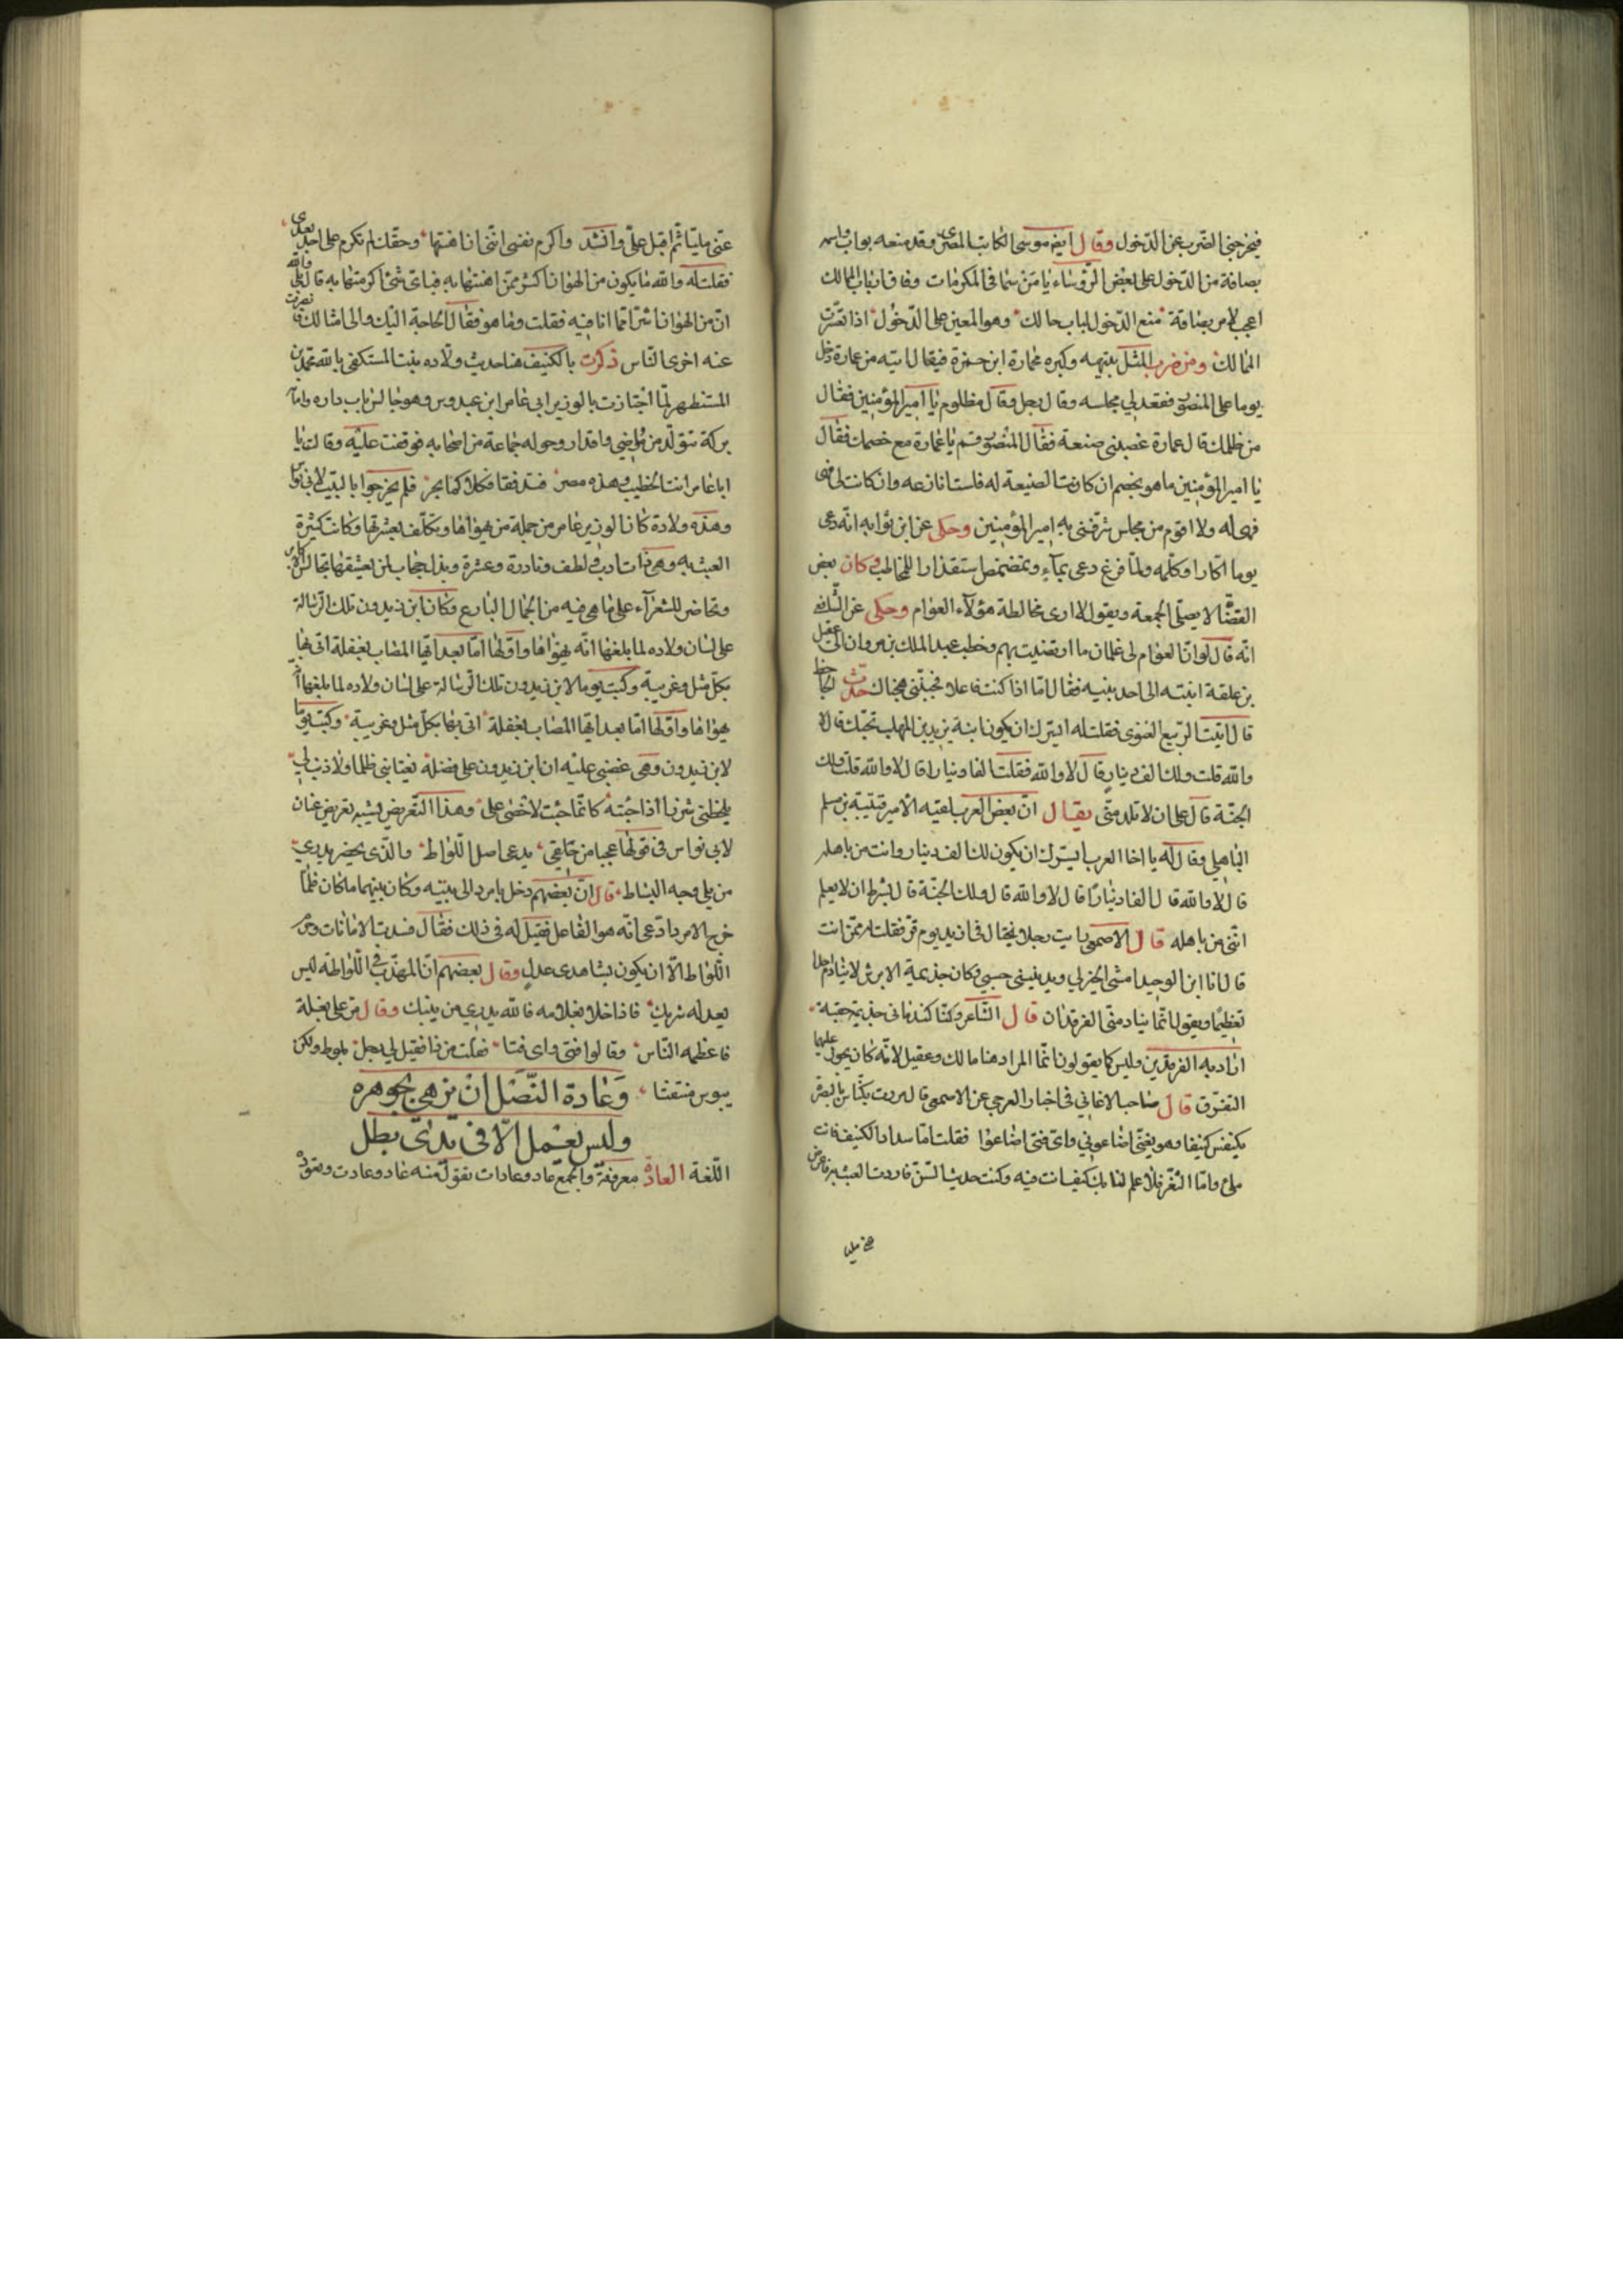 فيخرجني الضرب عن الدخول وقال ايضا موسى الكاتب المصرى وقد منعه بواب واسمه
بصاقة من الدخول على بعض الرؤساء يا من سما في المكرمات وفاق ارباب الممالك
اعجب لامر بصاقة منع الدخول لباب حالك وهو المعين على الدخول اذا تعسرت
المسالك ومن ضرب المثل بتيهه وكبره عمارة ابن حمزة فيقال اتيه من عمارة دخل
يوما على المنصور فقعد في مجلسه وقال رجل وقال مظلوم يا امير المؤمنين فقال
من ظلمك قال عمارة غصبني ضيعة فقال المنصور قم يا عمارة مع خصمك فقال
يا امير المؤمنين ما هو بخصم ان كانت الضيعة له فلست انازعه وان كانت لى فهى
فهى له ولا اقوم من مجلس شرفني به امير المؤمنين وحكى عن ابن ثوابه انه دعى
يوما اكارا وكلمه ولما فرغ دعى بماء وتمضمض استقذارا للمخاطب وكان بعض
القضاة لا يصلى الجمعة ويقول لا ارى مخالطة هؤلاء العوام وحكى عن الشافعى
انه قال لو ان العوام لى غلمان ما ارتضيت بهم وخطب عبد الملك بن مروان الى عقيل
بن علقة ابنته الى احد بنيه فقال اما اذا كنت فاعلا فجنبني هجناك حدث الجاحظ
قال اتيت الربيع الغنوى فقلت له ايسرك ان يكون ابنة يزيد بن المهلب تحتك قال لا
والله قلت ولك الف دينار قال لا والله فقلت الفا دينار قال لا والله قلت ولك
الجنة قال على ان لا تلد منى يقال ان بعض العرب لقيه الامير قتيبة بن مسلم
الباهلي وقال له يا اخا العرب ايسرك ان يكون لك الف دينار وانت من باهله
قال لا والله قال الفا دينار قال لا والله قال ولك الجنة قال بشرط ان لا يعلم
اننى من باهله قال الاصمعى رايت رجلا يختال في ازيد يوم قر فقلت له ممن انت
قال انا ابن الوحيد امشى الخيزلي ويدفيني حسبي وكان جذيمة الابرش لا ينادم احدا
تعظيما ويقول انما ينادمني الفرقدان قال الشاعر وكنا كندماني جذيمة حقبة
اراد به الفرقدين وليس كما يقولون انما المراد هنا مالك وعقيل لانه كان يجوز عليهما
التفرق قال صاحب الاغاني في اخبار العرجي عن الاصمعي قال مررت بكناس بالبصرة
يكنس كنيفا وهو يغني اضاعوني واى فتى اضاعوا فقلت اما سداد الكنيف فانت
ملئ واما الثغر فلا علم لنا بك كيف انت فيه وكنت حديث السن فاردت العبث به فاعرض
عنى مليا
عنى مليا ثم اقبل على وانشد واكرم نفسى اننى ان اهنتها وحقك لم تكرم على احد بعدى
فقلت له والله ما يكون من الهوان اكثر ممن اهنتها به فباى شئ اكرمتها به قال بلى والله
ان من الهوان اشر مما انا فيه فقلت وما هو فقال الحاجة اليك والى امثالك فانصرفت
عنه اخزى الناس ذكرت بالكنيف هنا حديث ولاده بنت المستكفى بالله محمد بن
المستظهر لما اجتازت بالوزير ابى عامر ابن عبدوس وهو جالس باب داره وامامه
بركة تتولد من مواضى واقذار وحوله جماعة من اصحابه فوقفت عليه وقالت يا
ابا عامر انت الخطيب وهذه مصر فتدفقا فكلاكما بحر فلم يخرجوا بالبيت لابى نواس
وهذه ولادة كان الوزير عامر من جملة من يهواها ويتكلف بعشرتها وكانت كثيرة
العبث به وهى ذات ادب ولطف ونادرة وعشرة وبذل حجاب لمن يعشقها تجالس الادباء
وتحاضر للشعراء على ما هى فيه من الجمال البارع وكان ابن زيدون تلك الرسالة
على لسان ولاده لما بلغها انه يهواها واولها اما بعد ايها المصاب بغفلة اتى بها
بكل مثل وغريبة وكتب يوما لابن زيدون تلك الرسالة على لسان ولاده لما بلغها انه
يهواها واولها اما بعد ايها المصاب بغفلة اتى بها بكل مثل وغريبة وكتب يوما
لابن زيدون وهى غضبى عليه ان ابن زيدون على فضله يغتابنى ظلما ولا ذنب لي
يلحظنى شزرا اذا جئته كانما جئت لاخصى على وهذا التعريض يشبه تعريض عنان
لابى نواس في قولها عجبا من حلقي يدعى اصل اللواط والذى يحضر يدرى
من يلى وجه البساط قال ان بعضهم دخل بامرد الى بيته وكان بينهما ما كان فلما
خرج الامرد ادعى انه هو الفاعل فقيل له فى ذلك فقال فسدت الامانات وحرم
اللواط الا ان يكون بشاهدى عدل وقال بعضهم ان المهذب في اللواطة ليس
يعدله شريك فاذا خلا بغلامه فالله يدري من ينيك وقال مر على بغلة
فاعظمه الناس وقالوا فتى واى فتا فقلت من ذا فقيل لي رجل يلوط ولكن
يبوس منتفثا وعادة النصل ان يزهى بجوهره
وليس يعمل الا في يدى بطل
اللغة العادة معروفة والجمع عاد وعادات تقول منه عاد وعادت وتعود